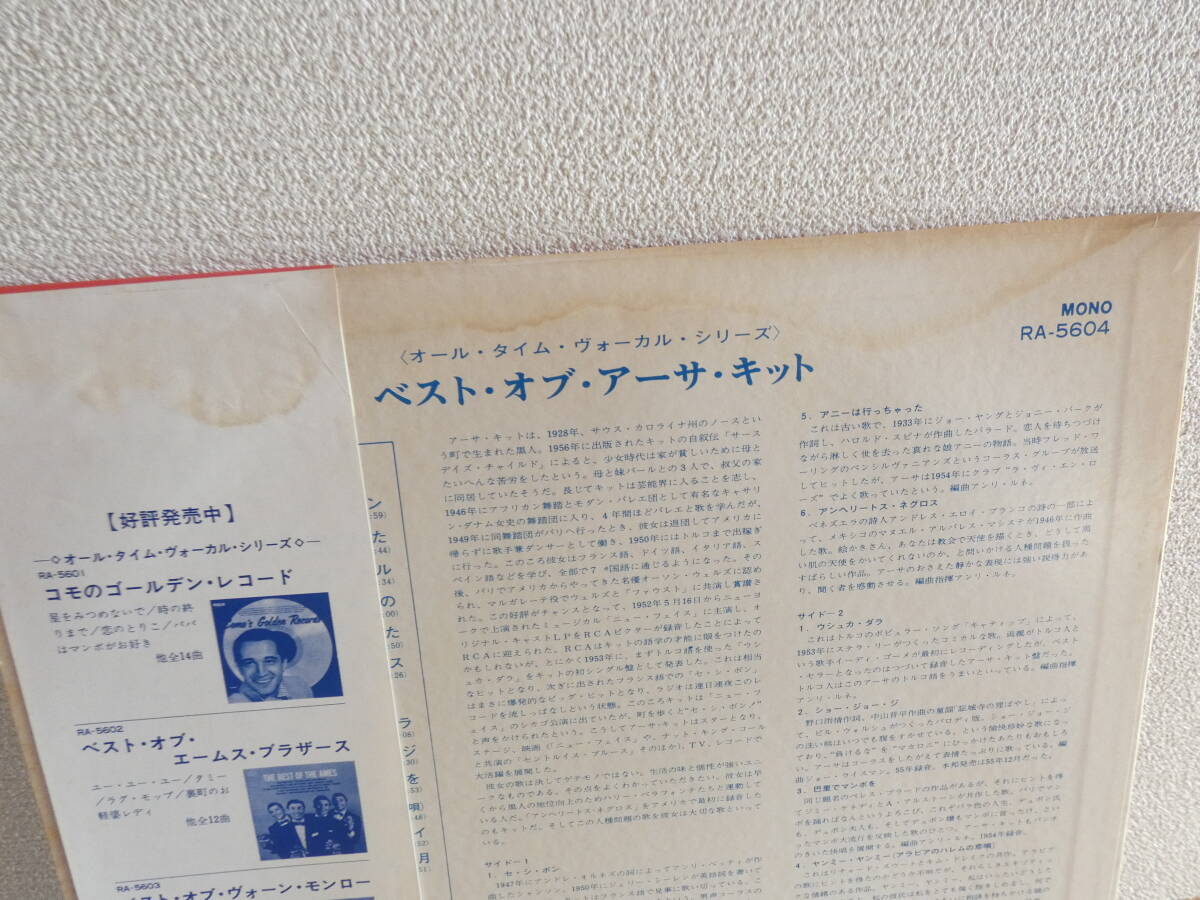 【好評発売中】
―◇オール・タイム・ヴォーカル・シリーズ◇―
RA-5601
コモのゴールデン・レコード
星をみつめないで/時の終
りまで/恋のとりこ/パパ
はマンボがお好き
他全14曲
Como's Golden Records
RA-5602
ベスト・オブ・
エームス・ブラザース
ユー・ユー・ユー/タミー
/ラグ・モップ/裏町のお
転婆レディ
他全12曲
THE BEST OF THE AMES
RA-5603
ベスト・オブ・ヴォーン・モンロー
MONO
RA-5604
〈オール・タイム・ヴォーカル・シリーズ〉
ベスト・オブ・アーサ・キット
アーサ・キットは、1928年、サウス・カロライナ州のノースとい
う町で生まれた黒人。1956年に出版されたキットの自叙伝「サース
デイズ・チャイルド」によると、少女時代は家が貧しいために母と
たいへんな苦労をしたという。母と妹パールとの3人で、叔父の家
に同居していたそうだ。長じてキットは芸能界に入ることを志し、
1946年にアフリカン舞踏とモダン・バレエ団として有名なキャサリ
ン・ダナム女史の舞踏団に入り、4年間ほどバレエと歌を学んだが、
1949年に同舞踏団がパリへ行ったとき、彼女は退団してアメリカに
帰らずに歌手兼ダンサーとして働き、1950年にはトルコまで出稼ぎ
に行った。このころ彼女はフランス語、ドイツ語、イタリア語、ス
ペイン語などを学び、全部で7ヵ国語に通じるようになった。その
後、パリでアメリカからやってきた名優オーソン・ウェルズに認め
られ、マルガレーテ役でウェルズと「ファウスト」に共演し賞讃さ
れた。この好評がチャンスとなって、1952年5月16日からニューヨ
ークで上演されたミュージカル「ニュー・フェイス」に主演し、オ
リジナル・キャストLPをRCAビクターが録音したことによって
RCAに迎えられた。RCAはキットの語学の才能に眼をつけたの
かもしれないが、とにかく1953年に、まずトルコ語を使った「ウシ
ュカ・ダラ」をキットの初シングル盤として発表した。これは相当
なヒットとなり、次ぎに出されたフランス語での「セ・シ・ボン」
はまさに爆発的なビッグ・ヒットとなり、ラジオは連日連夜このレ
コードを流しっぱなしという状態。このころキットは「ニュー・フ
ェイス」のシカゴ公演に出ていたが、町を歩くと"セ・シ・ボン！"
と声をかけられたという。こうしてアーサ・キットはスターとなり、
ステージ、映画（「ニュー・フェイス」や、ナット・キング・コール
と共演の「セントルイス・ブルース」そのほか）、TV、レコードで
大活躍を展開した。
彼女の歌は決してゲテモノではない。生活の味と個性が強いユニ
ークなものである。その点をよくわかっていただきたい。彼女は早
くから黒人の地位向上のためハリー・ベラフォンテたちと運動して
いる人だ。「アンヘリートス・ネグロス」をアメリカで最初に録音した
のもキットだ。そしてこの人種問題の歌を彼女は大切な歌といって
いる。
サイドー1
1．セ・シ・ボン
1947年にアンドレ・オルネズの詞によってアンリ・ベッティが作
ったシャンソン。1950年にジェリー・シーレンが英語詞を書いて
5．アニーは行っちゃった
これは古い歌で、1933年にジョー・ヤングとジョニー・バークが
作詞し、ハロルド・スピナが作曲したバラード。恋人を待ちつづけ
ながら淋しく世を去った哀れな娘アニーの物語。当時フレッド・ワ
ーリングのペンシルヴァニアンズというコーラス・グループが放送
してヒットしたが、アーサは1954年にクラブ"ラ・ヴィ・エン・ロ
ーズ"でよく歌っていたという。編曲アンリ・ルネ。
6．アンヘリートス・ネグロス
ベネズエラの詩人アンドレス・エロイ・ブランコの詩の一部によ
って、メキシコのマヌエル・アルバレス・マシステが1946年に作曲
した歌。絵かきさん、あなたは教会で天使を描くとき、どうして黒
い肌の天使をかいてくれないのか、と問いかける人種問題を扱った
すばらしい作品。アーサのおさえた静かな表現には強い説得力があ
り、聞く者を感動させる。編曲指揮アンリ・ルネ。
サイドー2
1．ウシュカ・ダラ
これはトルコのポピュラー・ソング「キャティップ」によって、
1953年にステラ・リーがつくったコミカルな歌。両親がトルコ人と
いう歌手イーディ・ゴーメが最初にレコーディングしたが、ベスト
・セラーとなったのはつづいて録音したアーサ・キット盤だった。
トルコ人はこのアーサのトルコ語をうまいといっている。編曲指揮
アンリ・ルネ。
2．ショー・ジョー・ジ
野口雨情作詞、中山晋平作曲の童謡「証城寺の狸ばやし」によっ
て、ビル・ヴォルシュがつくったパロディ版。ショー・ジョー・ジ
の洗い熊はいつでも腹をすかせている、という愉快珍妙な歌になっ
ており、"負けるな"を"マカロニ"にひっかけたあたりもおもしろ
い。アーサはコーラスをしたがえて表情たっぷりに歌っている。編
曲ジョー・ライスマン。55年録音、本邦発売は55年12月だった。
3．巴里でマンボを
4．ヤンミー・ヤンミー（アラビアのハレムの悲唄）